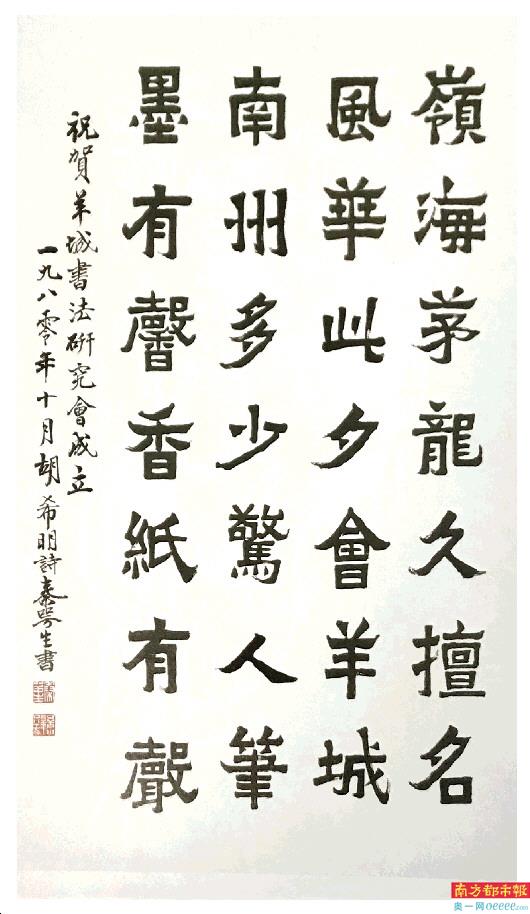 嶺海茅龍久擅名
風華此夕會羊城
南州多少驚人筆
墨有馨香紙有聲
祝賀羊城書法研究會成立
一九八零年十月胡希明詩秦咢生書
南方都市報
奥一网oeeee.com